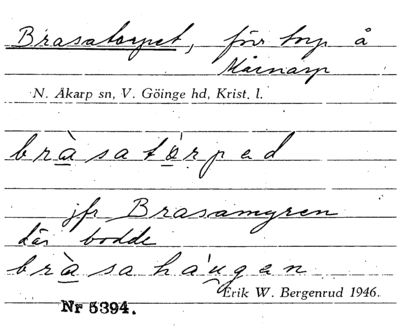 Brasatorpet, förr torp å
Mårnarp
N. Åkarp sn, V. Göinge hd, Krist. l.
bràsatò̱rped
jfr Brasamyren
där bodde
bràsahá'ugan
Erik W. Bergenrud 1946.
Nr 5394.